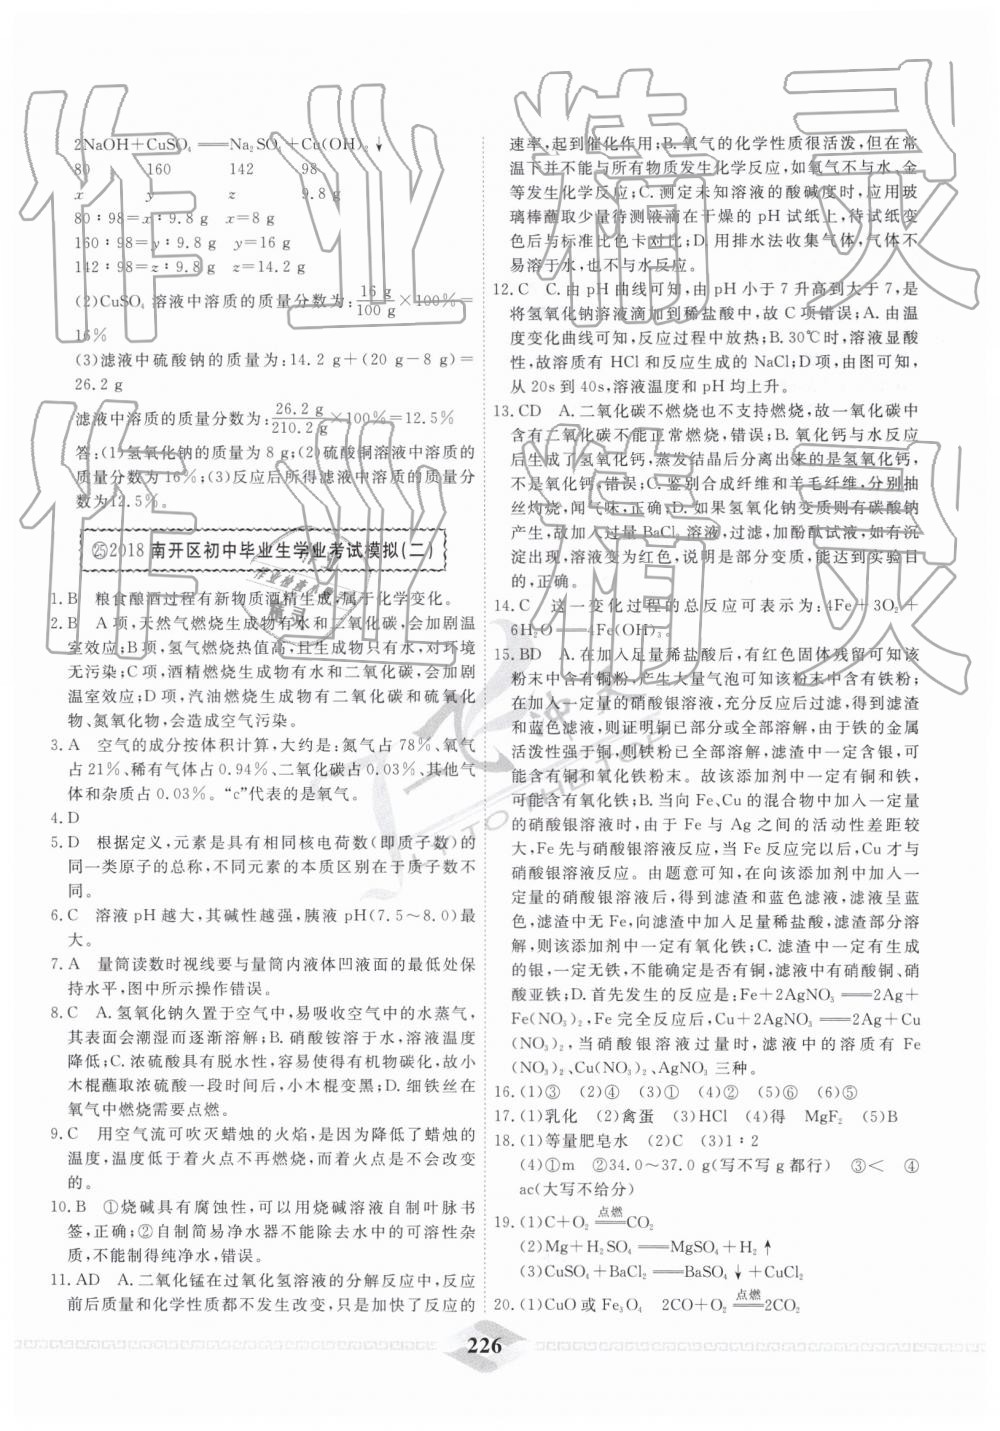 2NaOH+CuSO₄══Na₂SO₄+Cu(OH)₂↓
80 160 142 98
x y z 9.8 g
80∶98=x∶9.8 g x=8 g
160∶98=y∶9.8 g y=16 g
142∶98=z∶9.8 g z=14.2 g
(2)CuSO₄ 溶液中溶质的质量分数为:16 g/100 g×100%=
16%
(3)滤液中硫酸钠的质量为:14.2 g+(20 g-8 g)=
26.2 g
滤液中溶质的质量分数为:26.2 g/210.2 g×100%=12.5%
答:(1)氢氧化钠的质量为 8 g;(2)硫酸铜溶液中溶质的
质量分数为16%;(3)反应后所得滤液中溶质的质量分
数为12.5%。
㉕2018 南开区初中毕业生学业考试模拟(二)
1.B 粮食酿酒过程有新物质酒精生成,属于化学变化。
2.B A项,天然气燃烧生成物有水和二氧化碳,会加剧温
室效应;B项,氢气燃烧热值高,且生成物只有水,对环境
无污染;C项,酒精燃烧生成物有水和二氧化碳,会加剧
温室效应;D项,汽油燃烧生成物有二氧化碳和硫氧化
物、氮氧化物,会造成空气污染。
3.A 空气的成分按体积计算,大约是:氮气占78%、氧气
占21%、稀有气体占0.94%、二氧化碳占0.03%、其他气
体和杂质占0.03%。“c”代表的是氧气。
4.D
5.D 根据定义,元素是具有相同核电荷数(即质子数)的
同一类原子的总称,不同元素的本质区别在于质子数不
同。
6.C 溶液 pH 越大,其碱性越强,胰液 pH(7.5～8.0)最
大。
7.A 量筒读数时视线要与量筒内液体凹液面的最低处保
持水平,图中所示操作错误。
8.C A.氢氧化钠久置于空气中,易吸收空气中的水蒸气,
其表面会潮湿而逐渐溶解;B.硝酸铵溶于水,溶液温度
降低;C.浓硫酸具有脱水性,容易使得有机物碳化,故小
木棍蘸取浓硫酸一段时间后,小木棍变黑;D.细铁丝在
氧气中燃烧需要点燃。
9.C 用空气流可吹灭蜡烛的火焰,是因为降低了蜡烛的
温度,温度低于着火点不再燃烧,而着火点是不会改变
的。
10.B ①烧碱具有腐蚀性,可以用烧碱溶液自制叶脉书
签,正确;②自制简易净水器不能除去水中的可溶性杂
质,不能制得纯净水,错误。
11.AD A.二氧化锰在过氧化氢溶液的分解反应中,反应
前后质量和化学性质都不发生改变,只是加快了反应的
速率,起到催化作用;B.氧气的化学性质很活泼,但在常
温下并不能与所有物质发生化学反应,如氧气不与水、金
等发生化学反应;C.测定未知溶液的酸碱度时,应用玻
璃棒蘸取少量待测液滴在干燥的 pH 试纸上,待试纸变
色后与标准比色卡对比;D.用排水法收集气体,气体不
易溶于水,也不与水反应。
12.C C.由 pH 曲线可知,由 pH 小于 7 升高到大于 7,是
将氢氧化钠溶液滴加到稀盐酸中,故 C 项错误;A.由温
度变化曲线可知,反应过程中放热;B.30℃时,溶液显酸
性,故溶质有 HCl 和反应生成的 NaCl;D项,由图可知,
从 20s 到 40s,溶液温度和 pH 均上升。
13.CD A.二氧化碳不燃烧也不支持燃烧,故一氧化碳中
含有二氧化碳不能正常燃烧,错误;B.氧化钙与水反应
后生成了氢氧化钙,蒸发结晶后分离出来的是氢氧化钙,
不是氧化钙,错误;C.鉴别合成纤维和羊毛纤维,分别抽
丝灼烧,闻气味,正确;D.如果氢氧化钠变质则有碳酸钠
产生,故加入过量 BaCl₂ 溶液,过滤,加酚酞试液,如有沉
淀出现,溶液变为红色,说明是部分变质,能达到实验目
的,正确。
14.C 这一变化过程的总反应可表示为:4Fe+3O₂+
6H₂O══4Fe(OH)₃。
15.BD A.在加入足量稀盐酸后,有红色固体残留可知该
粉末中含有铜粉,产生大量气泡可知该粉末中含有铁粉;
在加入一定量的硝酸银溶液,充分反应后过滤,得到滤渣
和蓝色滤液,则证明铜已部分或全部溶解,由于铁的金属
活泼性强于铜,则铁粉已全部溶解,滤渣中一定含银,可
能含有铜和氧化铁粉末。故该添加剂中一定有铜和铁,
可能含有氧化铁;B.当向 Fe、Cu 的混合物中加入一定量
的硝酸银溶液时,由于 Fe 与 Ag 之间的活动性差距较
大,Fe先与硝酸银溶液反应,当 Fe 反应完以后,Cu才与
硝酸银溶液反应。由题意可知,在该添加剂中加入一
定量的硝酸银溶液后,得到滤渣和蓝色滤液,滤液呈蓝
色,滤渣中无 Fe,向滤渣中加入足量稀盐酸,滤渣部分溶
解,则该添加剂中一定有氧化铁;C.滤渣中一定有生成
的银,一定无铁,不能确定是否有铜,滤液中有硝酸铜、硝
酸亚铁;D.首先发生的反应是:Fe+2AgNO₃══2Ag+
Fe(NO₃)₂,Fe 完全反应后,Cu+2AgNO₃══2Ag+Cu
(NO₃)₂,当硝酸银溶液过量时,滤液中的溶质有 Fe
(NO₃)₂、Cu(NO₃)₂、AgNO₃ 三种。
16.(1)③ (2)④ (3)① (4)② (5)⑥ (6)⑤
17.(1)乳化 (2)禽蛋 (3)HCl (4)得 MgF₂ (5)B
18.(1)等量肥皂水 (2)C (3)1∶2
(4)①m ②34.0～37.0 g(写不写 g 都行) ③< ④
ac(大写不给分)
19.(1)C+O₂ 点燃══ CO₂
(2)Mg+H₂SO₄══MgSO₄+H₂↑
(3)CuSO₄+BaCl₂══BaSO₄↓+CuCl₂
20.(1)CuO 或 Fe₃O₄ 2CO+O₂ 点燃══ 2CO₂
226
作业精灵
作业精灵